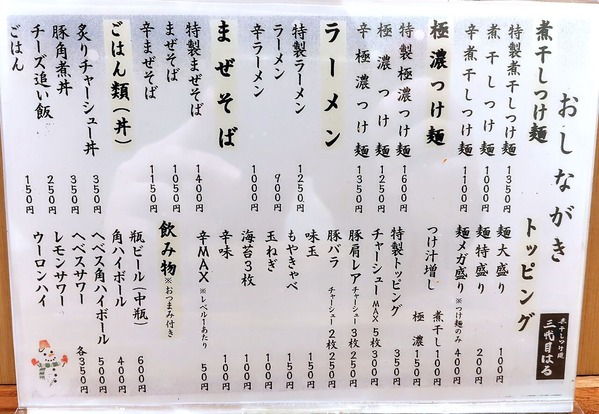 おしながき
煮干しつけ麺 三代目はる
煮干しつけ麺
特製煮干しつけ麺 1350円
煮干しつけ麺 1000円
辛煮干しつけ麺 1100円
極濃つけ麺
特製極濃つけ麺 1600円
極濃つけ麺 1250円
辛極濃つけ麺 1350円
ラーメン
特製ラーメン 1250円
ラーメン 900円
辛ラーメン 1000円
まぜそば
特製まぜそば 1400円
まぜそば 1050円
辛まぜそば 1150円
ごはん類(丼)
炙りチャーシュー丼 350円
豚角煮丼 350円
チーズ追い飯 250円
ごはん 150円
トッピング
麺大盛り 100円
麺特盛り 200円
麺メガ盛り ※つけ麺のみ 400円
つけ汁増し 煮干し 100円
極濃 150円
特製トッピング 350円
チャーシューMAX5枚 300円
豚肩レアチャーシュー3枚 250円
豚バラチャーシュー2枚 250円
味玉 100円
もやきゃべ 100円
玉ねぎ 100円
海苔3枚 100円
辛味 100円
辛MAX ※レベル1あたり 50円
飲み物 ※おつまみ付き
瓶ビール(中瓶) 600円
角ハイボール 400円
ヘベス角ハイボール 500円
ヘベスサワー
レモンサワー
ウーロンハイ
各350円